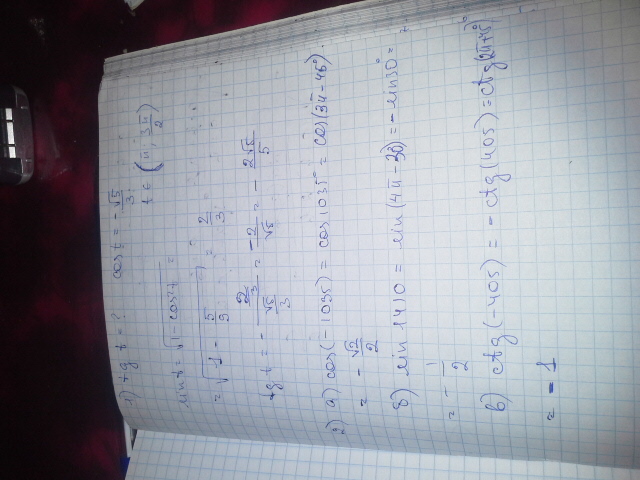 1) tg t = ? cos t = -√5/3
t ∈ (π; 3π/2)
sin t = √1 - cos²t =
= √1 - 5/9 = - 2/3
tg t = - 2/3 / √5/3 = - 2/√5 = - 2√5/5
2) a) cos(-1035) = cos 1035° = cos(3π-45°)
= - √2/2
б) sin 1410 = sin(4π-30) = - sin 30° =
= - 1/2
в) ctg(-405) = - ctg(405) = ctg(2π+45°)
= - 1